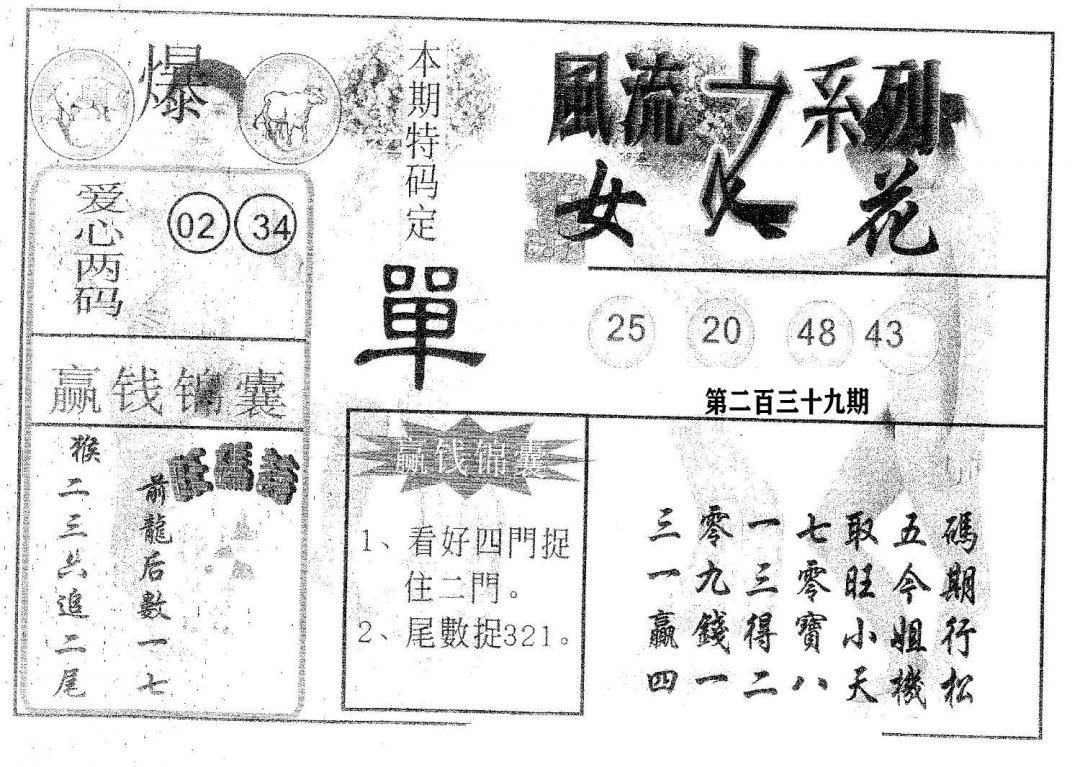 爆
爱心两码
02 34
赢钱锦囊
猴二三六追二尾
旺碼
前龍后數一七
本期特码定
單
赢钱锦囊
1、看好四門捉
住二門。
2、尾數捉321。
風流之系列
女人花
25 20 48 43
第二百三十九期
三零一七取五碼
一九三零旺今期
贏錢得寶小姐行
四一二八天機松